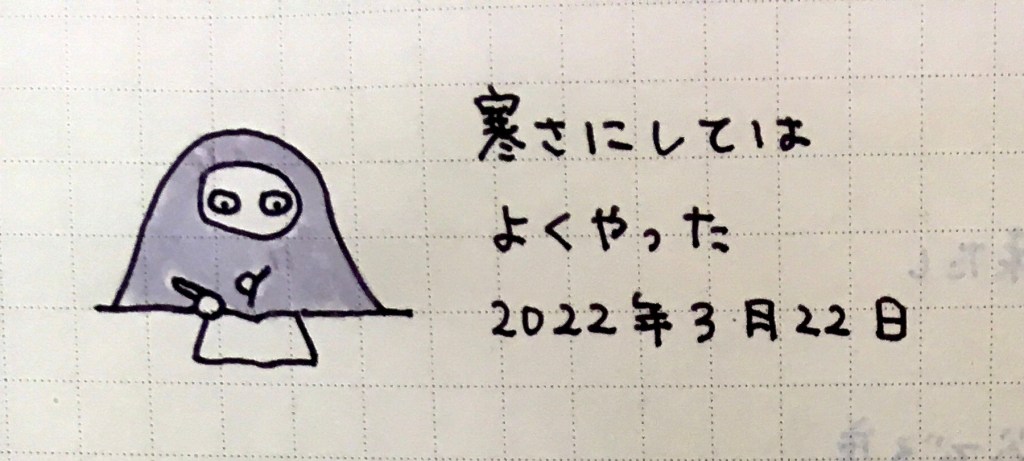 寒さにしては
よくやった
2022年3月22日